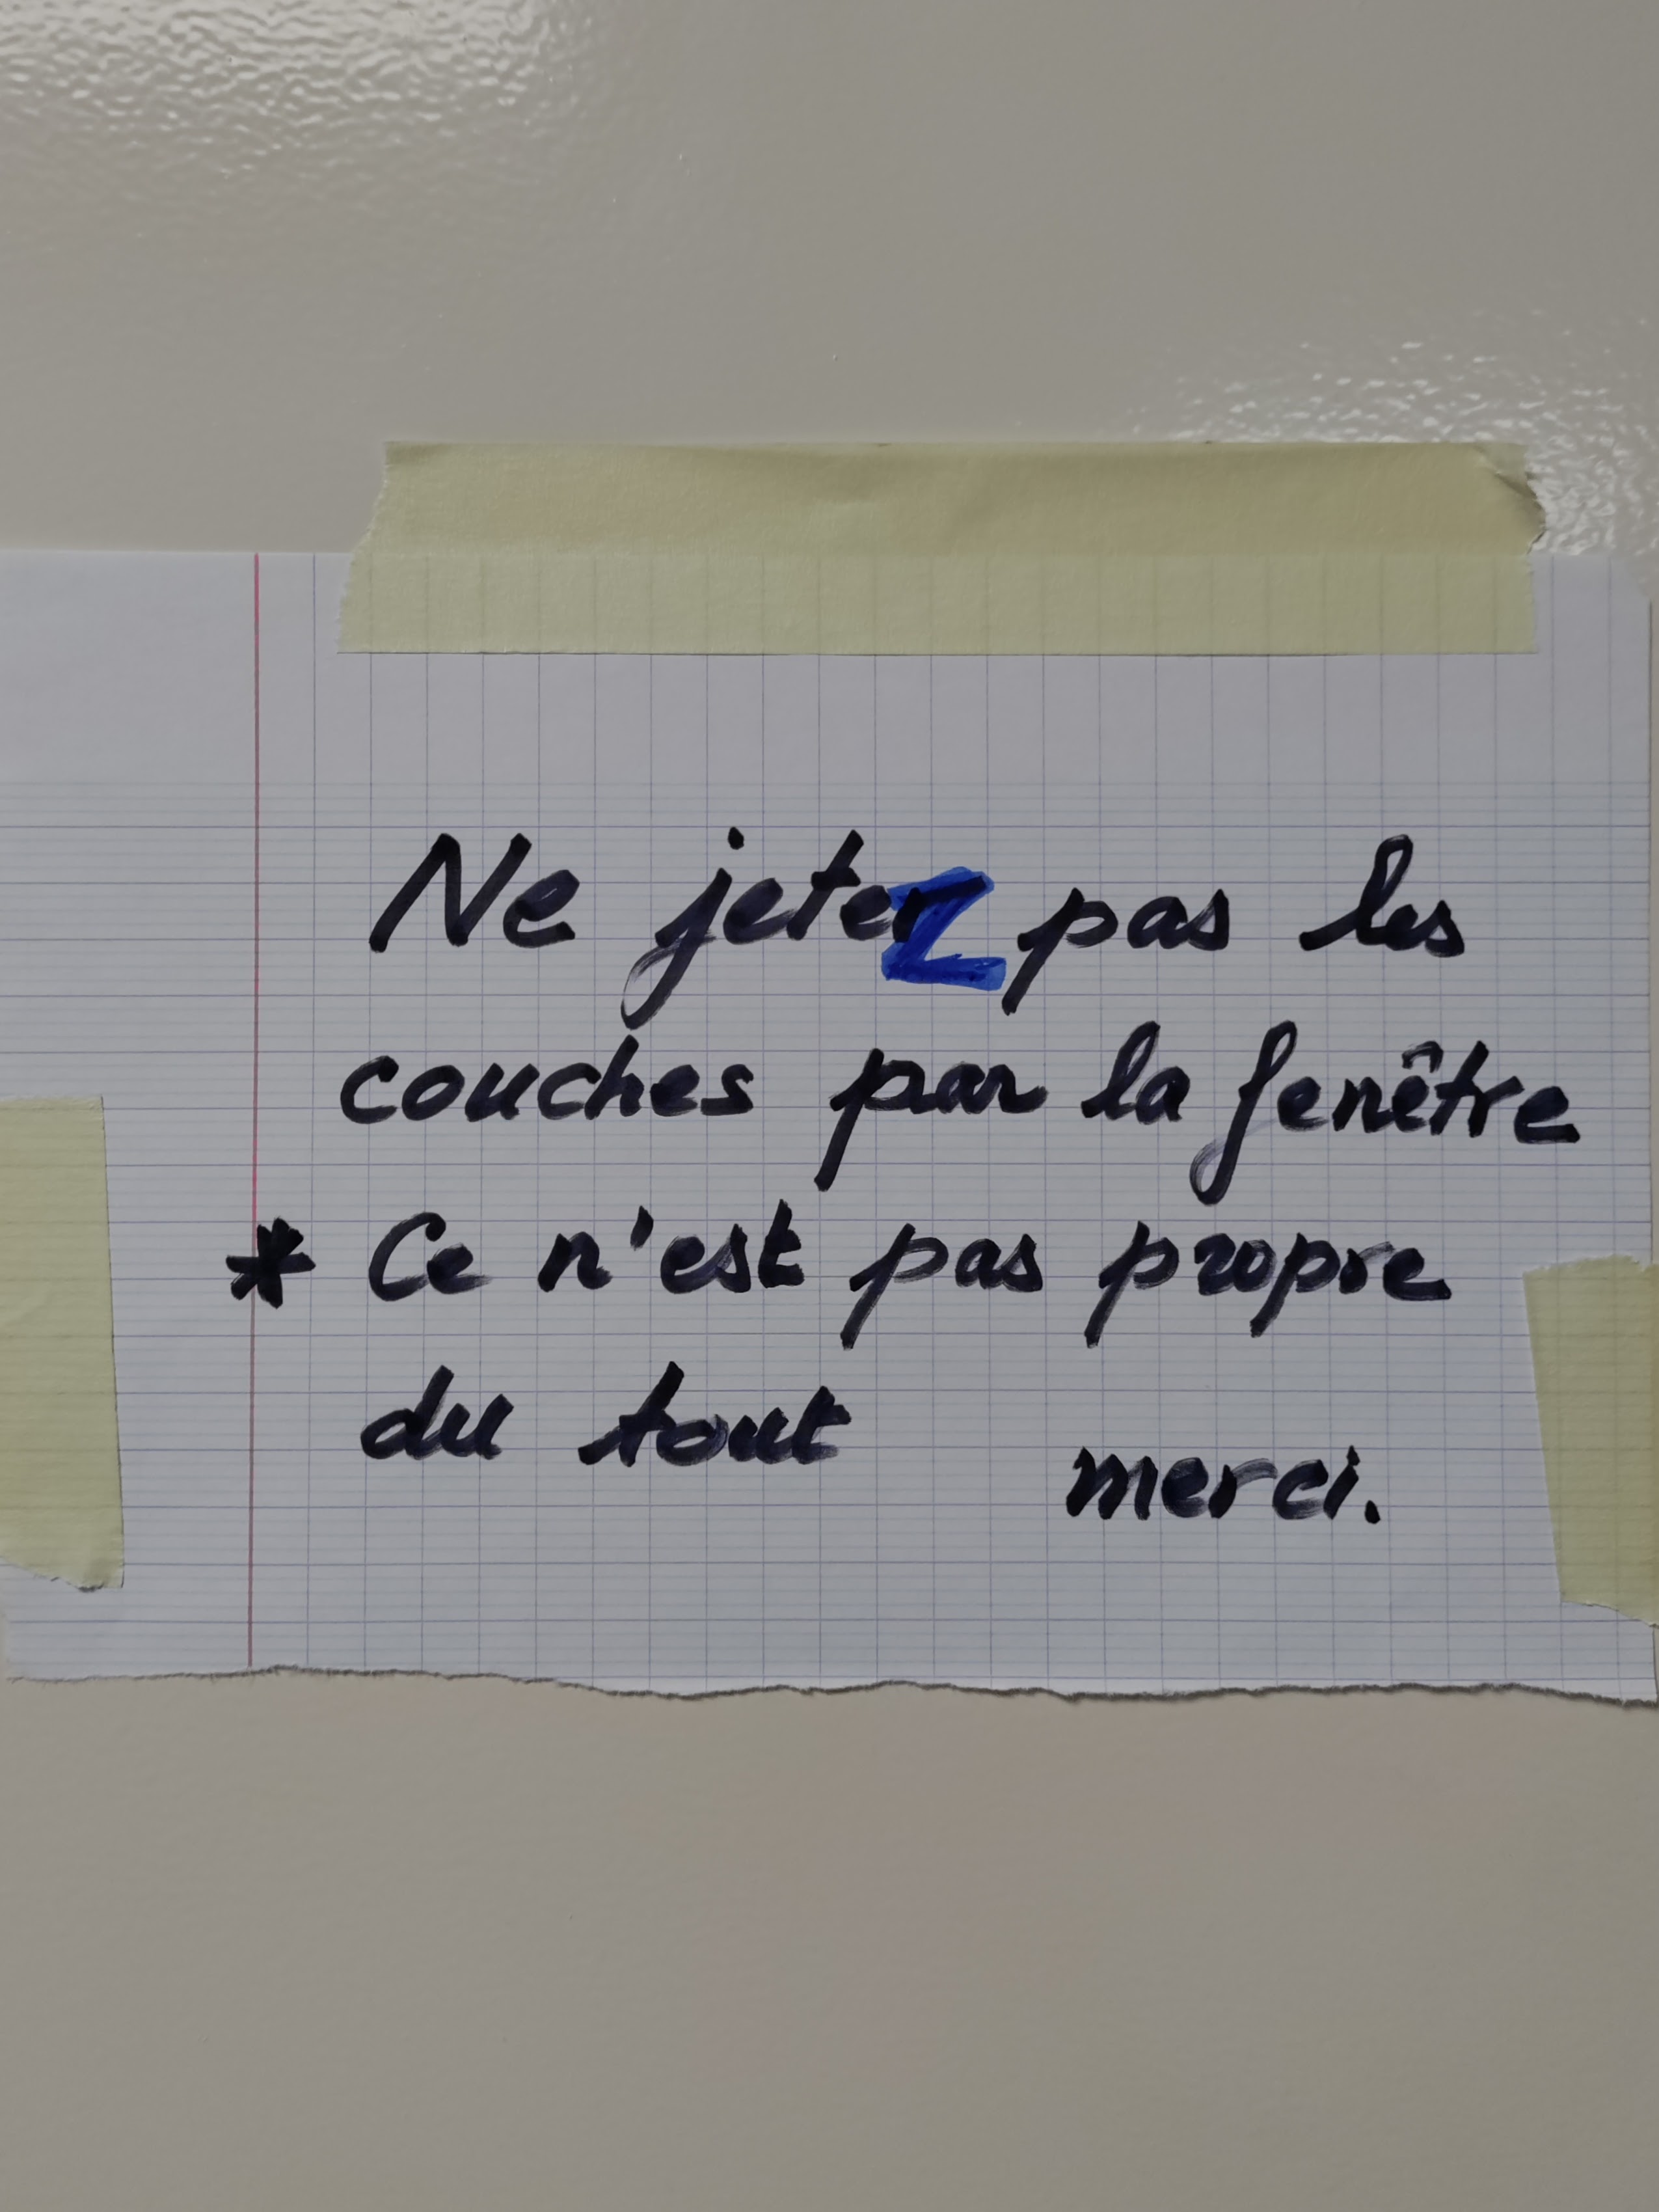 Ne jetez pas les
couches par la fenêtre
* Ce n'est pas propre
du tout
merci.